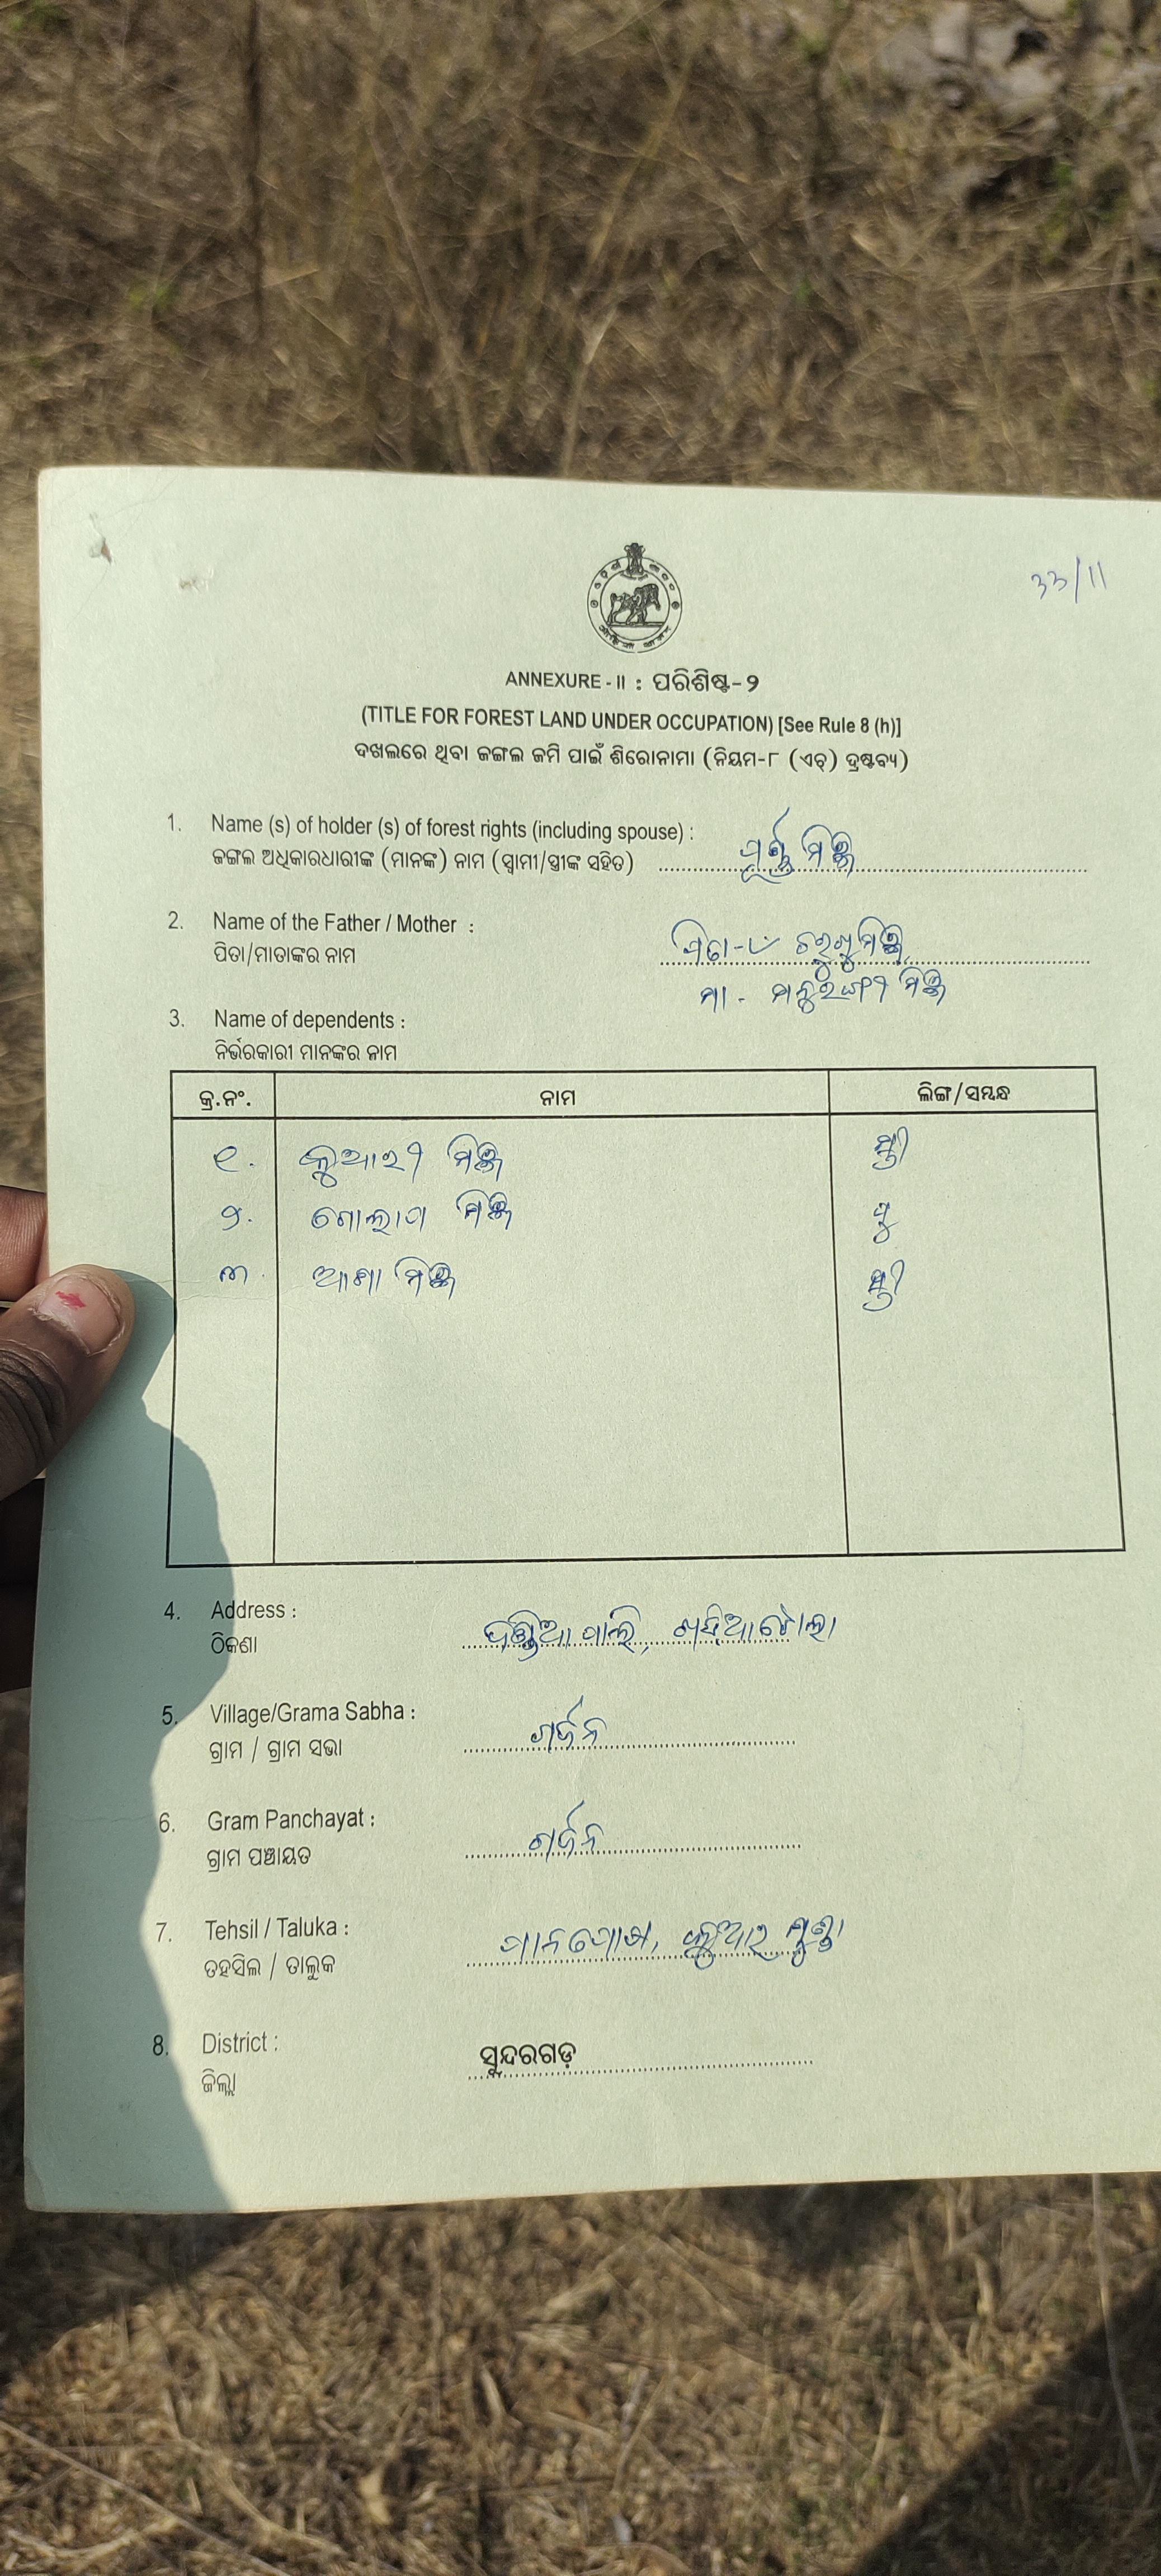 33/11
ANNEXURE - II : ପରିଶିଷ୍ଟ-୨
(TITLE FOR FOREST LAND UNDER OCCUPATION) [See Rule 8 (h)]
ଦଖଲରେ ଥିବା ଜଙ୍ଗଲ ଜମି ପାଇଁ ଶିରୋନାମା (ନିୟମ-୮ (ଏଚ୍) ଦ୍ରଷ୍ଟବ୍ୟ)
1. Name (s) of holder (s) of forest rights (including spouse) :
ଜଙ୍ଗଲ ଅଧିକାରଧାରୀଙ୍କ (ମାନଙ୍କ) ନାମ (ସ୍ୱାମୀ/ସ୍ତ୍ରୀଙ୍କ ସହିତ) ପୂର୍ଣ୍ଣ ମିଞ୍ଜ
2. Name of the Father / Mother :
ପିତା/ମାତାଙ୍କର ନାମ ପିତା- ମିଞ୍ଜ
ମା - ମିଞ୍ଜ
3. Name of dependents :
ନିର୍ଭରକାରୀ ମାନଙ୍କର ନାମ
କ୍ର.ନଂ. ନାମ ଲିଙ୍ଗ/ସମ୍ବନ୍ଧ
୧. କୁଆରୀ ମିଞ୍ଜ ସ୍ତ୍ରୀ
୨. ଗୋଲାପ ମିଞ୍ଜ ପୁ
୩. ଆଶା ମିଞ୍ଜ ସ୍ତ୍ରୀ
4. Address :
ଠିକଣା ଖଡ଼ିଆଟୋଲା
5. Village/Grama Sabha :
ଗ୍ରାମ / ଗ୍ରାମ ସଭା ଗର୍ଜନ
6. Gram Panchayat :
ଗ୍ରାମ ପଞ୍ଚାୟତ ଗର୍ଜନ
7. Tehsil / Taluka :
ତହସିଲ / ତାଲୁକ ପାନପୋଷ, କୁଆରମୁଣ୍ଡା
8. District :
ଜିଲ୍ଲା ସୁନ୍ଦରଗଡ଼